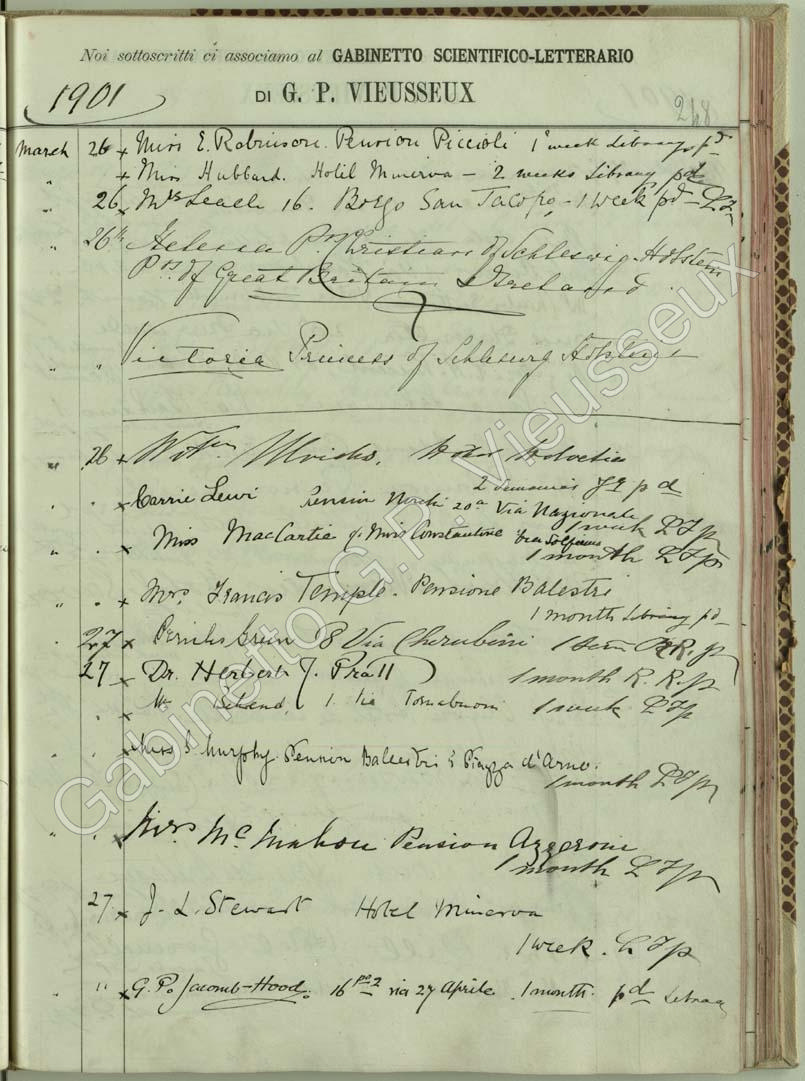 Noi sottoscritti ci associamo al GABINETTO SCIENTIFICO-LETTERARIO
1901
DI G. P. VIEUSSEUX
248
March 26 x Miss E. Robinson. Pension Piccioli 1 week Library pd
" x Miss Hubbard. Hotel Minerva - 2 weeks Library pd
" 26 x Mrs Leach 16. Borgo San Jacopo - 1 week pd
" 26th Helena Pss Christian of Schleswig Holstein
Pss of Great Britain & Ireland.
" " Victoria Princess of Schleswig Holstein
" 26 x Ulrichs. Hotel Helvetia
2 semaines pd
" " x Carrie Lewi Pension 20a Via Nazionale
1 week
" " x Miss MacCartie c/o Miss Constantine Via Solferino
1 month
" " x Mrs. Francis Temple. Pensione Balestri
1 month Library pd
" 27 x 18 Via Cherubini R. p
27 x Dr. Herbert J. Pratt 1 month R. R. p
" x 1. Via Tornabuoni 1 week
" " x Miss S. Murphy Pension Balestri 5 Piazza d'Arno.
1 month
" " x Mrs McMahon Pension
1 month
27 x J. L. Stewart Hotel Minerva
1 week.
" " x G. P. Jacomb-Hood. 16 po 2 via 27 Aprile. 1 month. pd Library
Gabinetto G.P. Vieusseux